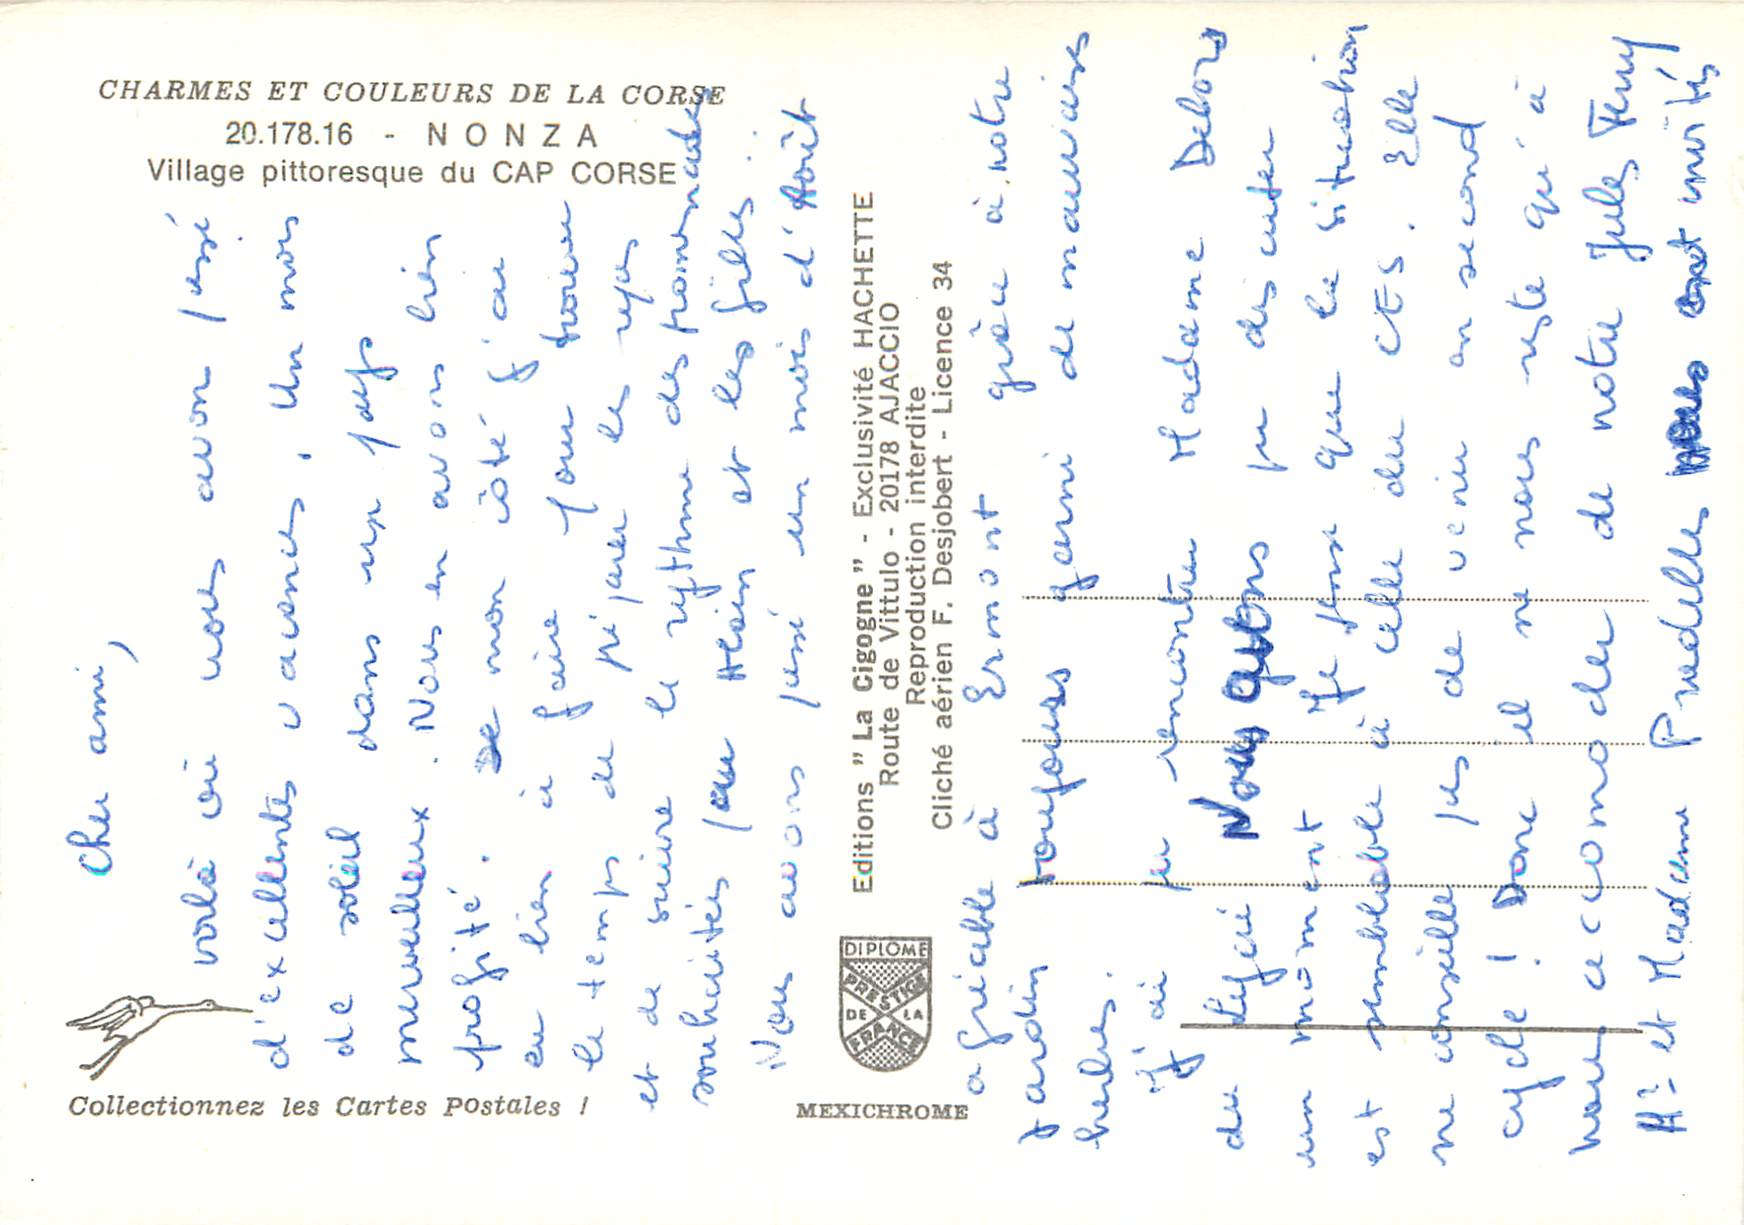 CHARMES ET COULEURS DE LA CORSE
20.178.16 - NONZA
Village pittoresque du CAP CORSE
Cher ami,
voilà où nous avons passé
d'excellentes vacances. Un mois
de soleil dans un pays
merveilleux. Nous en avons bien
profité. De mon côté j'ai
eu bien à faire pour trouver
le temps de préparer les repas
et de suivre le rythme des promenades
souhaitées par Alain et les filles...
Nous avons passé un mois d'Août
agréable à Ermont grâce à notre
jardin toujours garni de mauvaises
herbes.
J'ai pu rencontrer Madame Debord
du Lycée Nous avons pu discuter
un moment Je pense que la situation
est semblable à celle du CES. Elle
ne conseille pas de venir en second
cycle! Donc il ne nous reste qu'à
nous accomoder de notre Jules Ferry
Mr et Madame Pradelles sont invités
Editions "La Cigogne" - Exclusivité HACHETTE
Route de Vittulo - 20178 AJACCIO
Reproduction interdite
Cliché aérien F. Desjobert - Licence 34
DIPLOME
PRESTIGE
DE LA
FRANCE
Collectionnez les Cartes Postales !
MEXICHROME